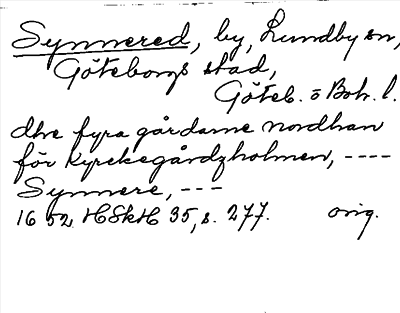 Synnered, by, Lundby sn,
Göteborgs stad,
Göteb. o Boh. l.
dhe fyra gårdarne nordhan
för Kyrckegårdzholmen, ----
Synnere, ---
1652 HSkH 35, s. 277. orig.